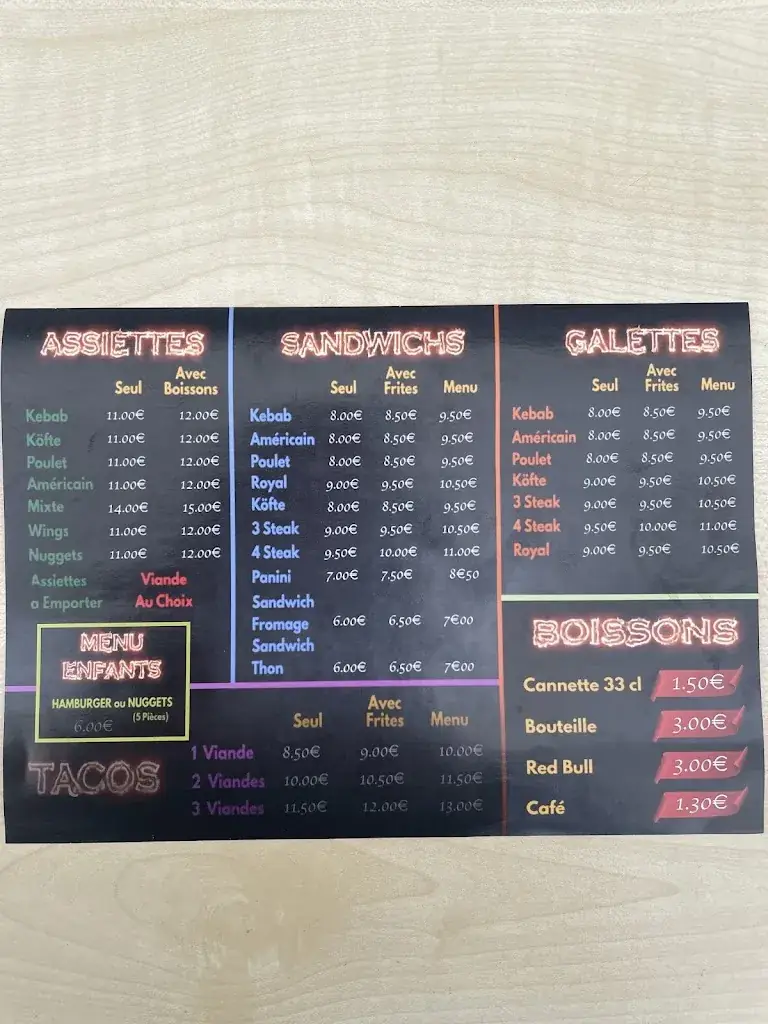 ASSIETTES
Seul Avec Boissons
Kebab 11.00€ 12.00€
Köfte 11.00€ 12.00€
Poulet 11.00€ 12.00€
Américain 11.00€ 12.00€
Mixte 14.00€ 15.00€
Wings 11.00€ 12.00€
Nuggets 11.00€ 12.00€
Assiettes Viande
a Emporter Au Choix
MENU
ENFANTS
HAMBURGER ou NUGGETS
6.00€ (5 Pièces)
SANDWICHS
Seul Avec Frites Menu
Kebab 8.00€ 8.50€ 9.50€
Américain 8.00€ 8.50€ 9.50€
Poulet 8.00€ 8.50€ 9.50€
Royal 9.00€ 9.50€ 10.50€
Köfte 8.00€ 8.50€ 9.50€
3 Steak 9.00€ 9.50€ 10.50€
4 Steak 9.50€ 10.00€ 11.00€
Panini 7.00€ 7.50€ 8€50
Sandwich
Fromage 6.00€ 6.50€ 7€00
Sandwich
Thon 6.00€ 6.50€ 7€00
GALETTES
Seul Avec Frites Menu
Kebab 8.00€ 8.50€ 9.50€
Américain 8.00€ 8.50€ 9.50€
Poulet 8.00€ 8.50€ 9.50€
Köfte 9.00€ 9.50€ 10.50€
3 Steak 9.00€ 9.50€ 10.50€
4 Steak 9.50€ 10.00€ 11.00€
Royal 9.00€ 9.50€ 10.50€
TACOS
Seul Avec Frites Menu
1 Viande 8.50€ 9.00€ 10.00€
2 Viandes 10.00€ 10.50€ 11.50€
3 Viandes 11.50€ 12.00€ 13.00€
BOISSONS
Cannette 33 cl 1.50€
Bouteille 3.00€
Red Bull 3.00€
Café 1.30€